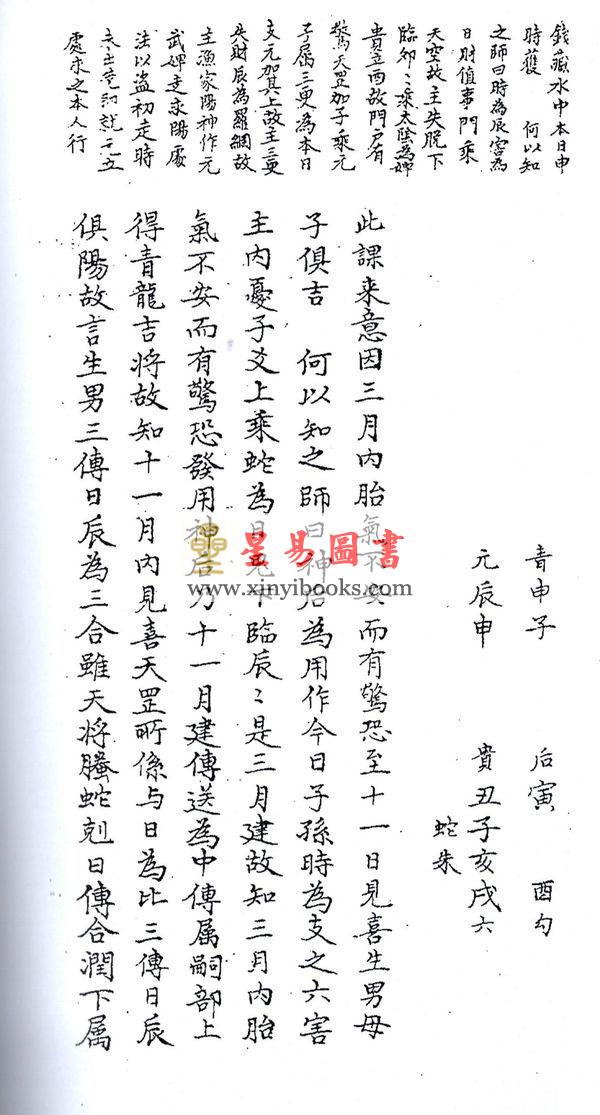 錢藏水中本日申
時獲　何以知
之師曰時為辰害為
日財值事門乘
天空故主失脱下
臨卯〻乘太陰為婢
貴立酉故門户有
驚天罡加子乘元
子属三更為本日
支元加其上故主三更
失財辰為羅網故
主漁家陽神作元
武婢走求陽處
法以盜初走時
就三五
處求之本人行
青申子　后寅　酉勾
元辰申　貴丑子亥戌六
蛇朱
此課来意因三月内胎氣不安而有驚恐至十一日見喜生男母
子俱吉　何以知之師曰神后為用作今日子孫時為支之六害
主内憂子爻上乘蛇為臨辰〻是三月建故知三月内胎
氣不安而有驚恐發用神后乃十一月建傳送為中傳属嗣部上
得青龍吉将故知十一月内見喜天罡所係与日為比三傳日辰
俱陽故言生男三傳日辰為三合雖天将螣蛇剋日傳合潤下属
星易圖書
www.xinyibooks.com